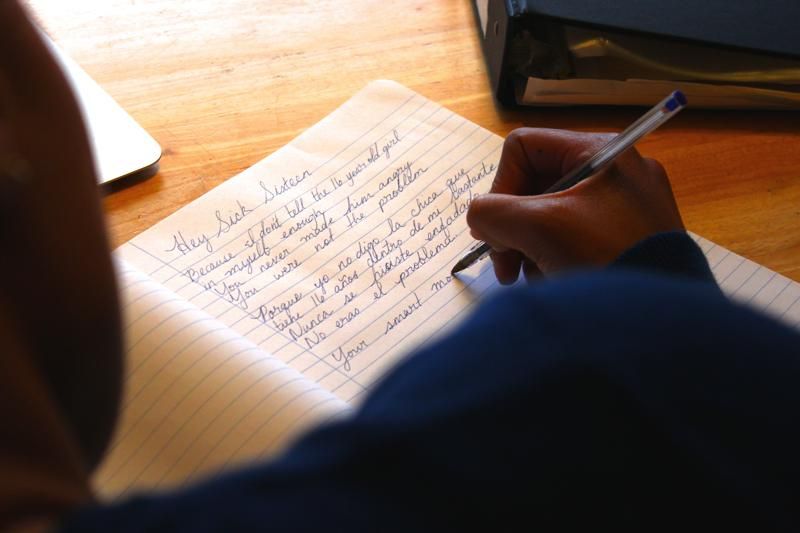 Hey Sick Sixteen
Because i don't tell the 16 year old girl
in myself enough
You never made him angry
You were not the problem
Porque yo no digo la chica que
tiene 16 años dentro de mi bastante
Nunca se hiciste enfadad
No eras el problema
Your smart mo